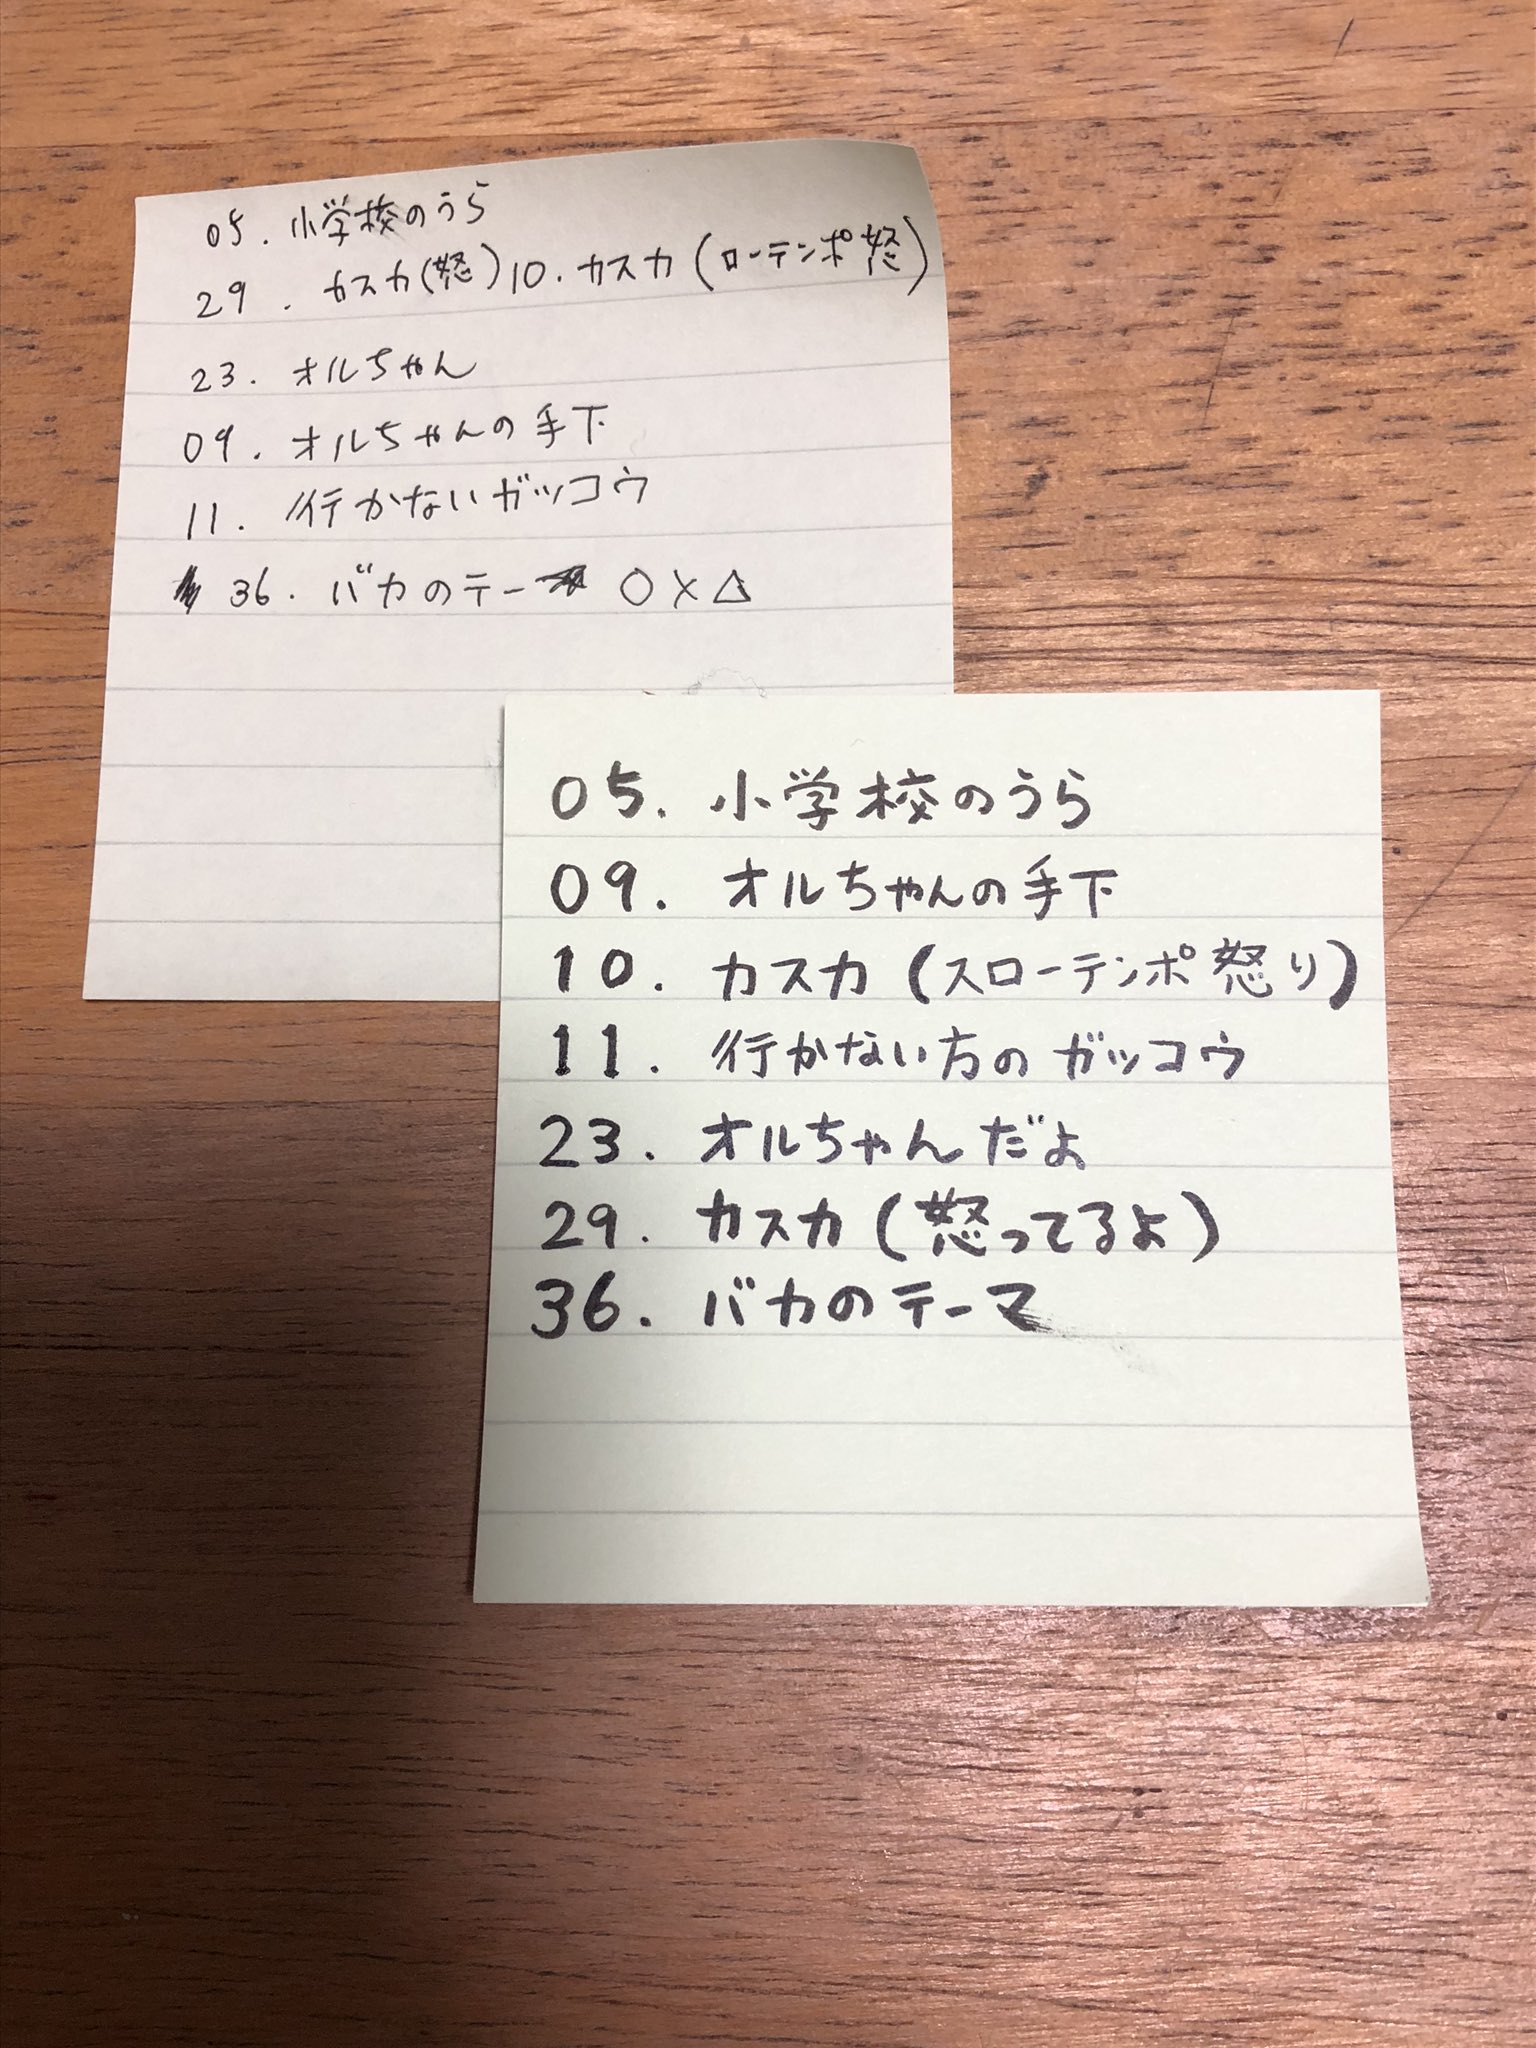 05. 小学校のうら
29. カスカ(怒) 10. カスカ (ローテンポ怒)
23. オルちゃん
09. オルちゃんの手下
11. 行かないガッコウ
36. バカのテー ○×△
05. 小学校のうら
09. オルちゃんの手下
10. カスカ (スローテンポ怒り)
11. 行かない方のガッコウ
23. オルちゃんだよ
29. カスカ (怒ってるよ)
36. バカのテーマ